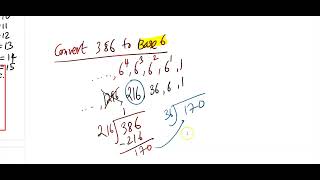 -11
= 12
= 13
= 14
= 15
Convert 386 to Base 6
....., 6⁴, 6³, 6², 6¹, 1
....., 216, 36, 6, 1
1
216 386 36 170
-216
170